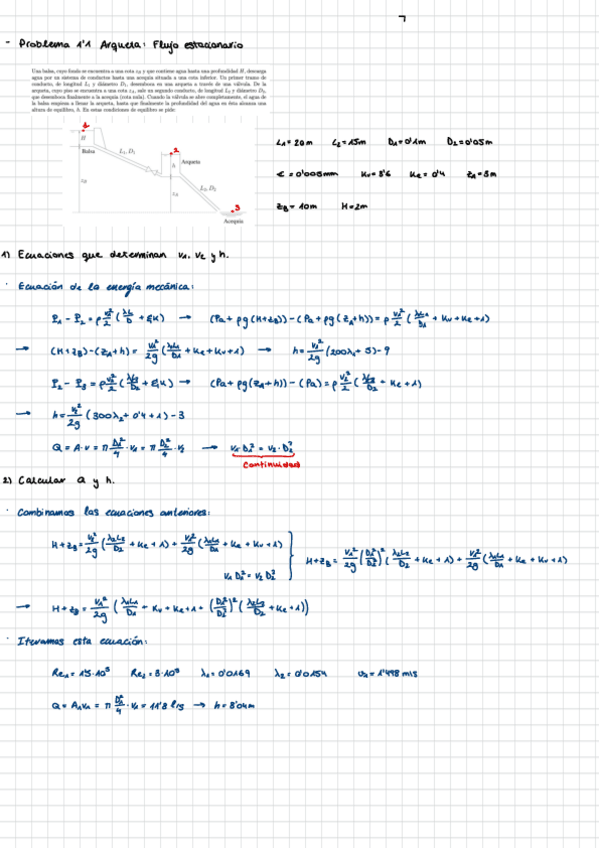 7
- Problema 1'1 Arqueta: Flujo estacionario
Una balsa, cuyo fondo se encuentra a una cota z_B y que contiene agua hasta una profundidad H, descarga
agua por un sistema de conductos hasta una acequia situada a una cota inferior. Un primer tramo de
conducto, de longitud L₁ y diámetro D₁, desemboca en una arqueta a través de una válvula. De la
arqueta, cuyo piso se encuentra a una cota z_A, sale un segundo conducto, de longitud L₂ y diámetro D₂,
que desemboca finalmente a la acequia (cota nula). Cuando la válvula se abre completamente, el agua de
la balsa empieza a llenar la arqueta, hasta que finalmente la profundidad del agua en ésta alcanza una
altura de equilibrio, h. En estas condiciones de equilibrio se pide:
1
H
Balsa
L₁, D₁
2
h
Arqueta
z_B
z_A
L₂, D₂
3
Acequia
L₁ = 20m L₂ = 15m D₁ = 0'1m D₂ = 0'05m
ε = 0'005mm Kv = 8'6 Ke = 0'4 z_A = 3m
z_B = 10m H = 2m
1) Ecuaciones que determinan v₁, v₂ y h.
· Ecuación de la energía mecánica:
P₁ - P₂ = ρ v₁²/2 (λL/D + ΣK) → (Pa + ρg(H+z_B)) - (Pa + ρg(z_A+h)) = ρ v₁²/2 (λ₁L₁/D₁ + Kv + Ke + 1)
→ (H+z_B) - (z_A+h) = v₁²/2g (λ₁L₁/D₁ + Ke + Kv + 1) → h = v₁²/2g (200λ₁ + 5) - 9
P₂ - P₃ = ρ v₂²/2 (λL₂/D₂ + ΣK) → (Pa + ρg(z_A+h)) - (Pa) = ρ v₂²/2 (λL₂/D₂ + Ke + 1)
→ h = v₂²/2g (300λ₂ + 0'4 + 1) - 3
Q = A·v = π D₁²/4 · v₁ = π D₂²/4 · v₂ → v₁·D₁² = v₂·D₂²
Continuidad
2) Calcular Q y h.
· Combinamos las ecuaciones anteriores:
H+z_B = v₂²/2g (λ₂L₂/D₂ + Ke + 1) + v₁²/2g (λ₁L₁/D₁ + Ke + Kv + 1)
v₁D₁² = v₂D₂²
H+z_B = v₁²/2g (D₁²/D₂²)² (λ₂L₂/D₂ + Ke + 1) + v₁²/2g (λ₁L₁/D₁ + Ke + Kv + 1)
→ H+z_B = v₁²/2g (λ₁L₁/D₁ + Kv + Ke + 1 + (D₁²/D₂²)² (λ₂L₂/D₂ + Ke + 1))
· Iteramos esta ecuación:
Re₁ = 1'5·10⁵ Re₂ = 3·10⁵ λ₁ = 0'0169 λ₂ = 0'0154 v₁ = 1'498 m/s
Q = A₁v₁ = π D₁²/4 · v₁ = 11'8 l/s → h = 8'04m